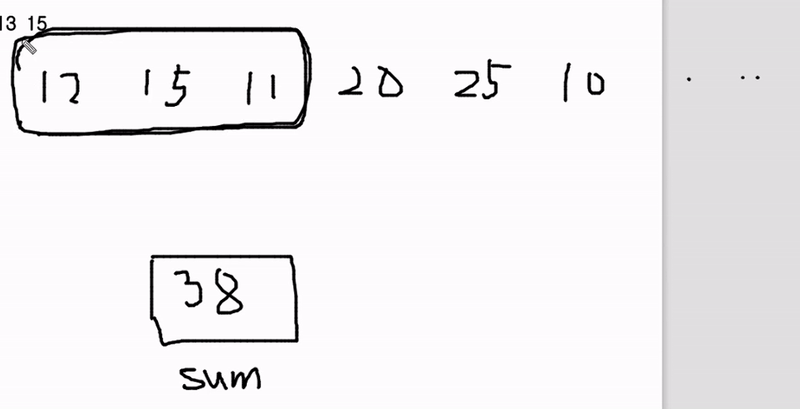 13 15
12 15 11 20 25 10 . . .
38
sum